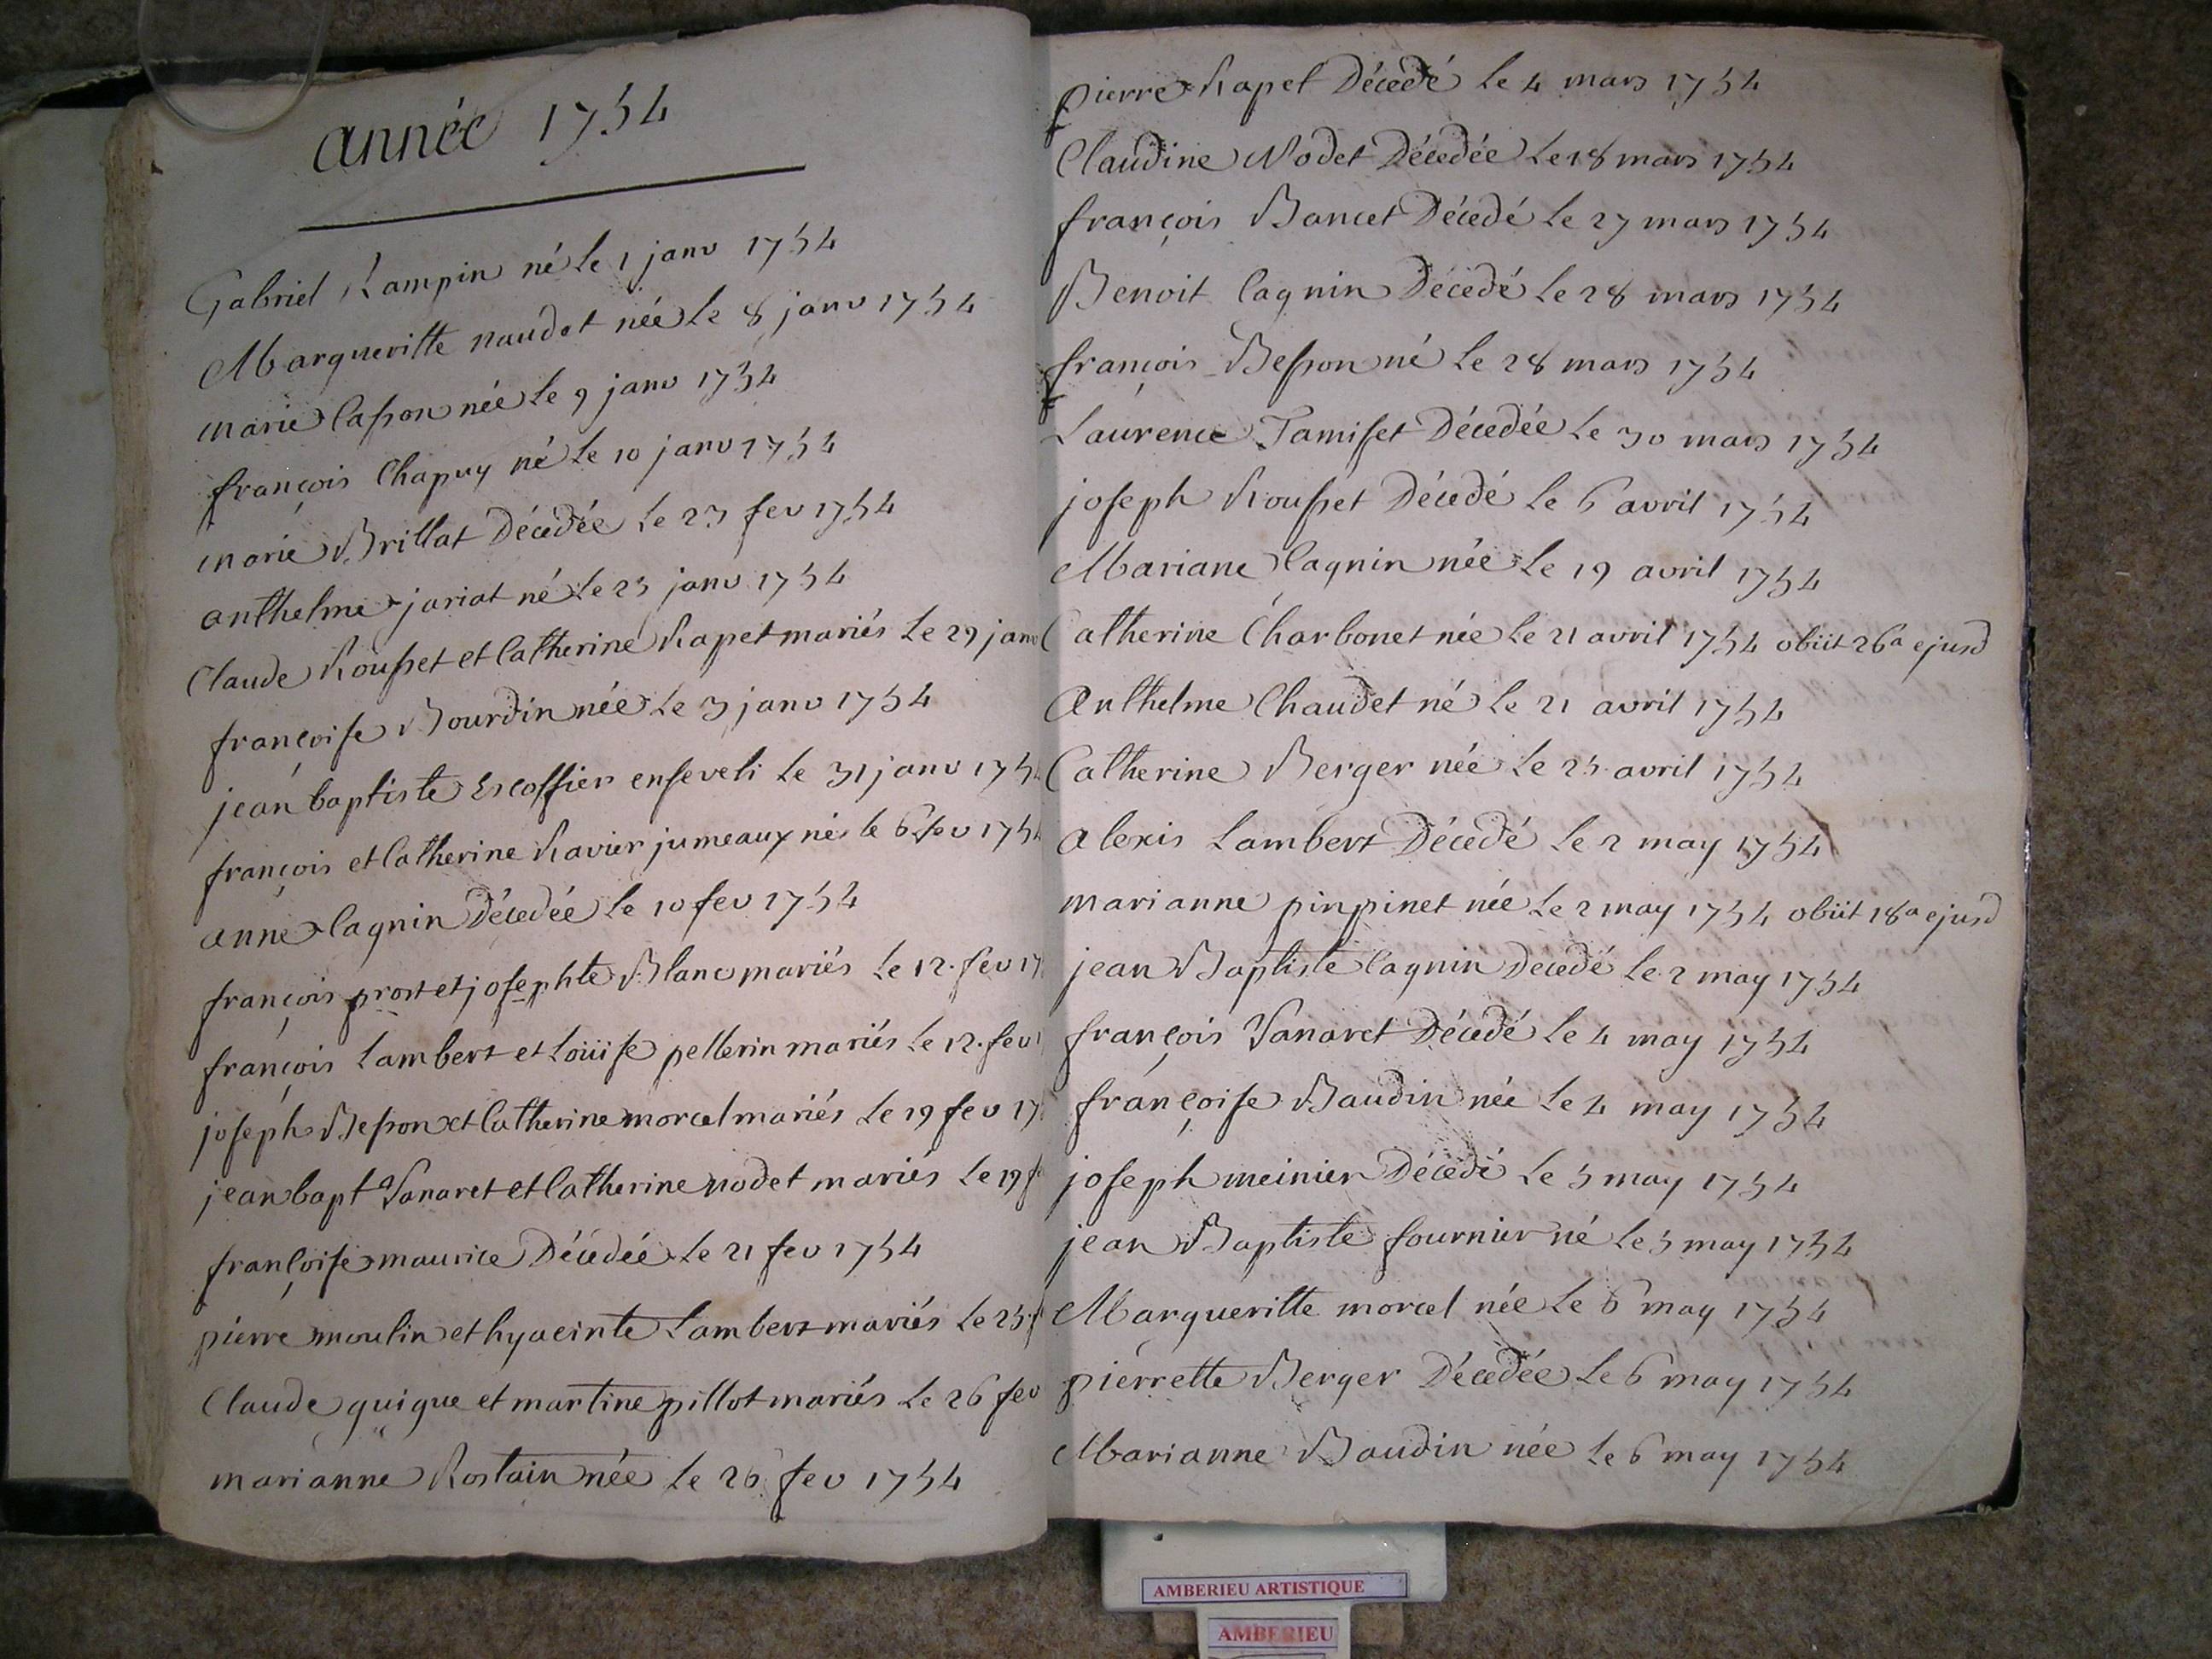 année 1754
Gabriel Rampin né le 1 janv 1754
Margueritte naudet née le 8 janv 1754
marie Casson née le 9 janv 1754
françois Chapuy né le 10 janv 1754
marie Brillat Décedée le 23 fev 1754
anthelme jariat né le 25 janv 1754
Claude Rousset et Catherine Rapet mariés le 29 janv
françoise Bourdin née le 3 janv 1754
jean baptiste Escoffier enseveli le 31 janv 1754
françois et Catherine Ravier jumeaux nés le 6 fev 1754
anne Cagnin Décedée le 10 fev 1754
françois prost et josephte Blanc mariés le 12. fev 17
françois Lambert et Loüise pellerin mariés le 12. fev 1
joseph Besson et Catherine morcel mariés le 19 fev 17
jean bapt Vanaret et Catherine nodet mariés le 19 f
françoise maurice Décedée le 21 fev 1754
pierre moulin et hyacinte Lambert mariés le 25 f
Claude guigue et martine pillot mariés le 26 fev
marianne Rostain née le 26 fev 1754
pierre Rapet Décedé le 4 mars 1754
Claudine Nodet Décedée le 18 mars 1754
françois Bancet Décedé le 27 mars 1754
Benoit Cagnin Décedé le 28 mars 1754
françois Besson né le 28 mars 1754
Laurence Tamiset Décedée le 30 mars 1754
joseph Rousset Décedé le 6 avril 1754
Mariane Cagnin née le 19 avril 1754
Catherine Charbonet née le 21 avril 1754 obiit 26a ejusd
Anthelme Chaudet né le 21 avril 1754
Catherine Berger née le 25 avril 1754
alexis Lambert Décedé le 2 may 1754
marianne pinpinet née le 2 may 1754 obiit 18a ejusd
jean Baptiste Cagnin Decedé le 2 may 1754
françois Vanaret Décedé le 4 may 1754
françoise Baudin née le 4 may 1754
joseph meinier Décedé le 5 may 1754
jean Baptiste fournier né le 5 may 1754
Margueritte morcel née le 6 may 1754
pierrette Berger Décedée le 6 may 1754
Marianne Baudin née le 6 may 1754
AMBERIEU ARTISTIQUE
AMBERIEU